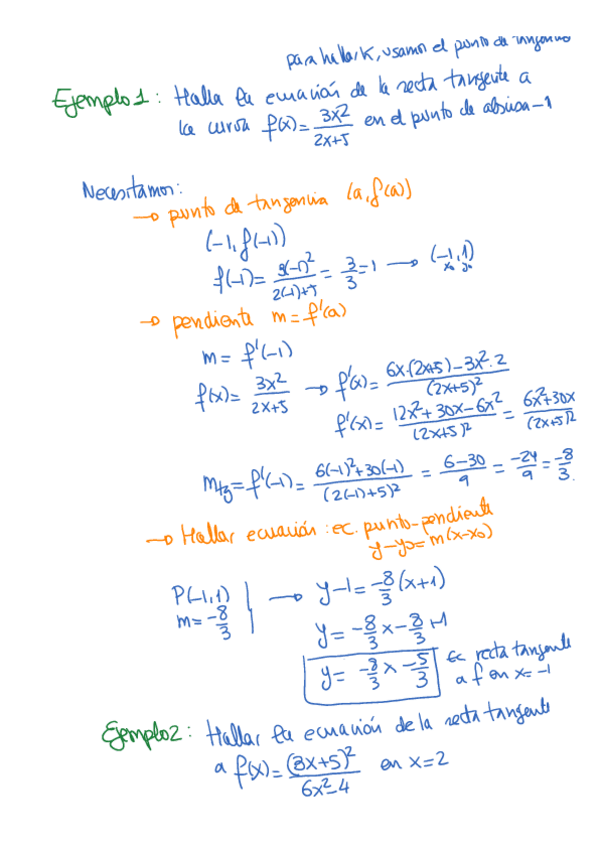 para hallar K, usamos el punto de tangencia
Ejemplo 1: Halla la ecuación de la recta tangente a
la curva f(x)= 3x2/2x+5 en el punto de abscisa -1
Necesitamos:
→ punto de tangencia (a, f(a))
(-1, f(-1))
f(-1)= 3(-1)²/2(-1)+5 = 3/3 = 1 → (-1, 1)
x₀ y₀
→ pendiente m = f'(a)
m = f'(-1)
f(x)= 3x2/2x+5 → f'(x)= 6x·(2x+5)-3x²·2/(2x+5)²
f'(x)= 12x²+30x-6x²/(2x+5)² = 6x²+30x/(2x+5)2
mtg=f'(-1)= 6(-1)²+30(-1)/(2(-1)+5)² = 6-30/9 = -24/9 = -8/3.
→ Hallar ecuación: ec. punto-pendiente
y-y₀=m(x-x₀)
P(-1,1)
m=-8/3
→ y-1=-8/3(x+1)
y= -8/3x-8/3+1
y= -8/3x-5/3
Ec recta tangente
a f en x=-1
Ejemplo2: Hallar la ecuación de la recta tangente
a f(x)= (3x+5)²/6x²-4 en x=2